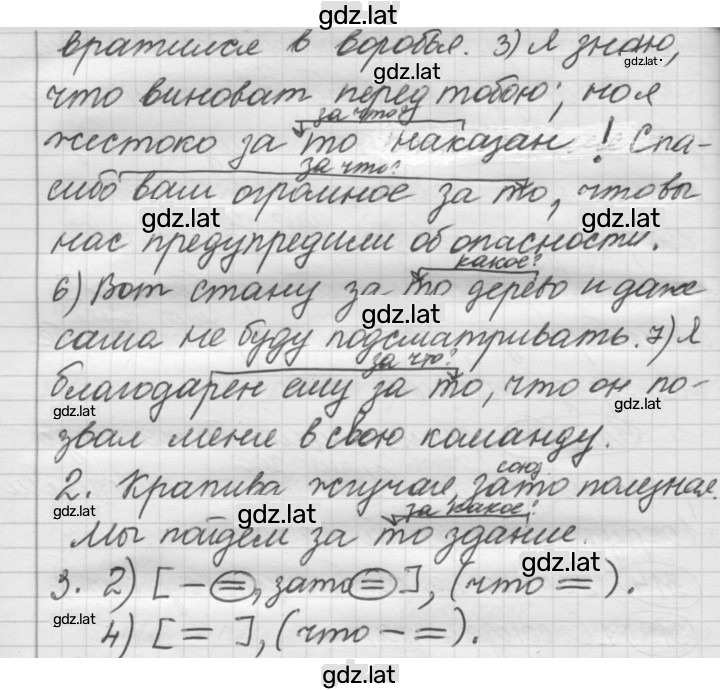 gdz.lat
вратился в воробья. 3) Я знаю,
gdz.lat
gdz.lat
что виноват перед тобою; но я
за что?
жестоко за то наказан! Спа-
за что?
сибо вам огромное за то, что вы
gdz.lat gdz.lat
нас предупредили об опасности.
какое?
6) Вот стану за то дерево и даже
gdz.lat
сама не буду подсматривать. 7) Я
за что?
благодарен ему за то, что он по-
gdz.lat gdz.lat
звал меня в свою команду.
союз
2. Крапива жгучая, зато полезная.
gdz.lat gdz.lat
за какое?
Мы пойдем за то здание.
gdz.lat
3. 2) [ – =, зато = ], (что = ).
gdz.lat
4) [ = ], (что – = ).
gdz.lat